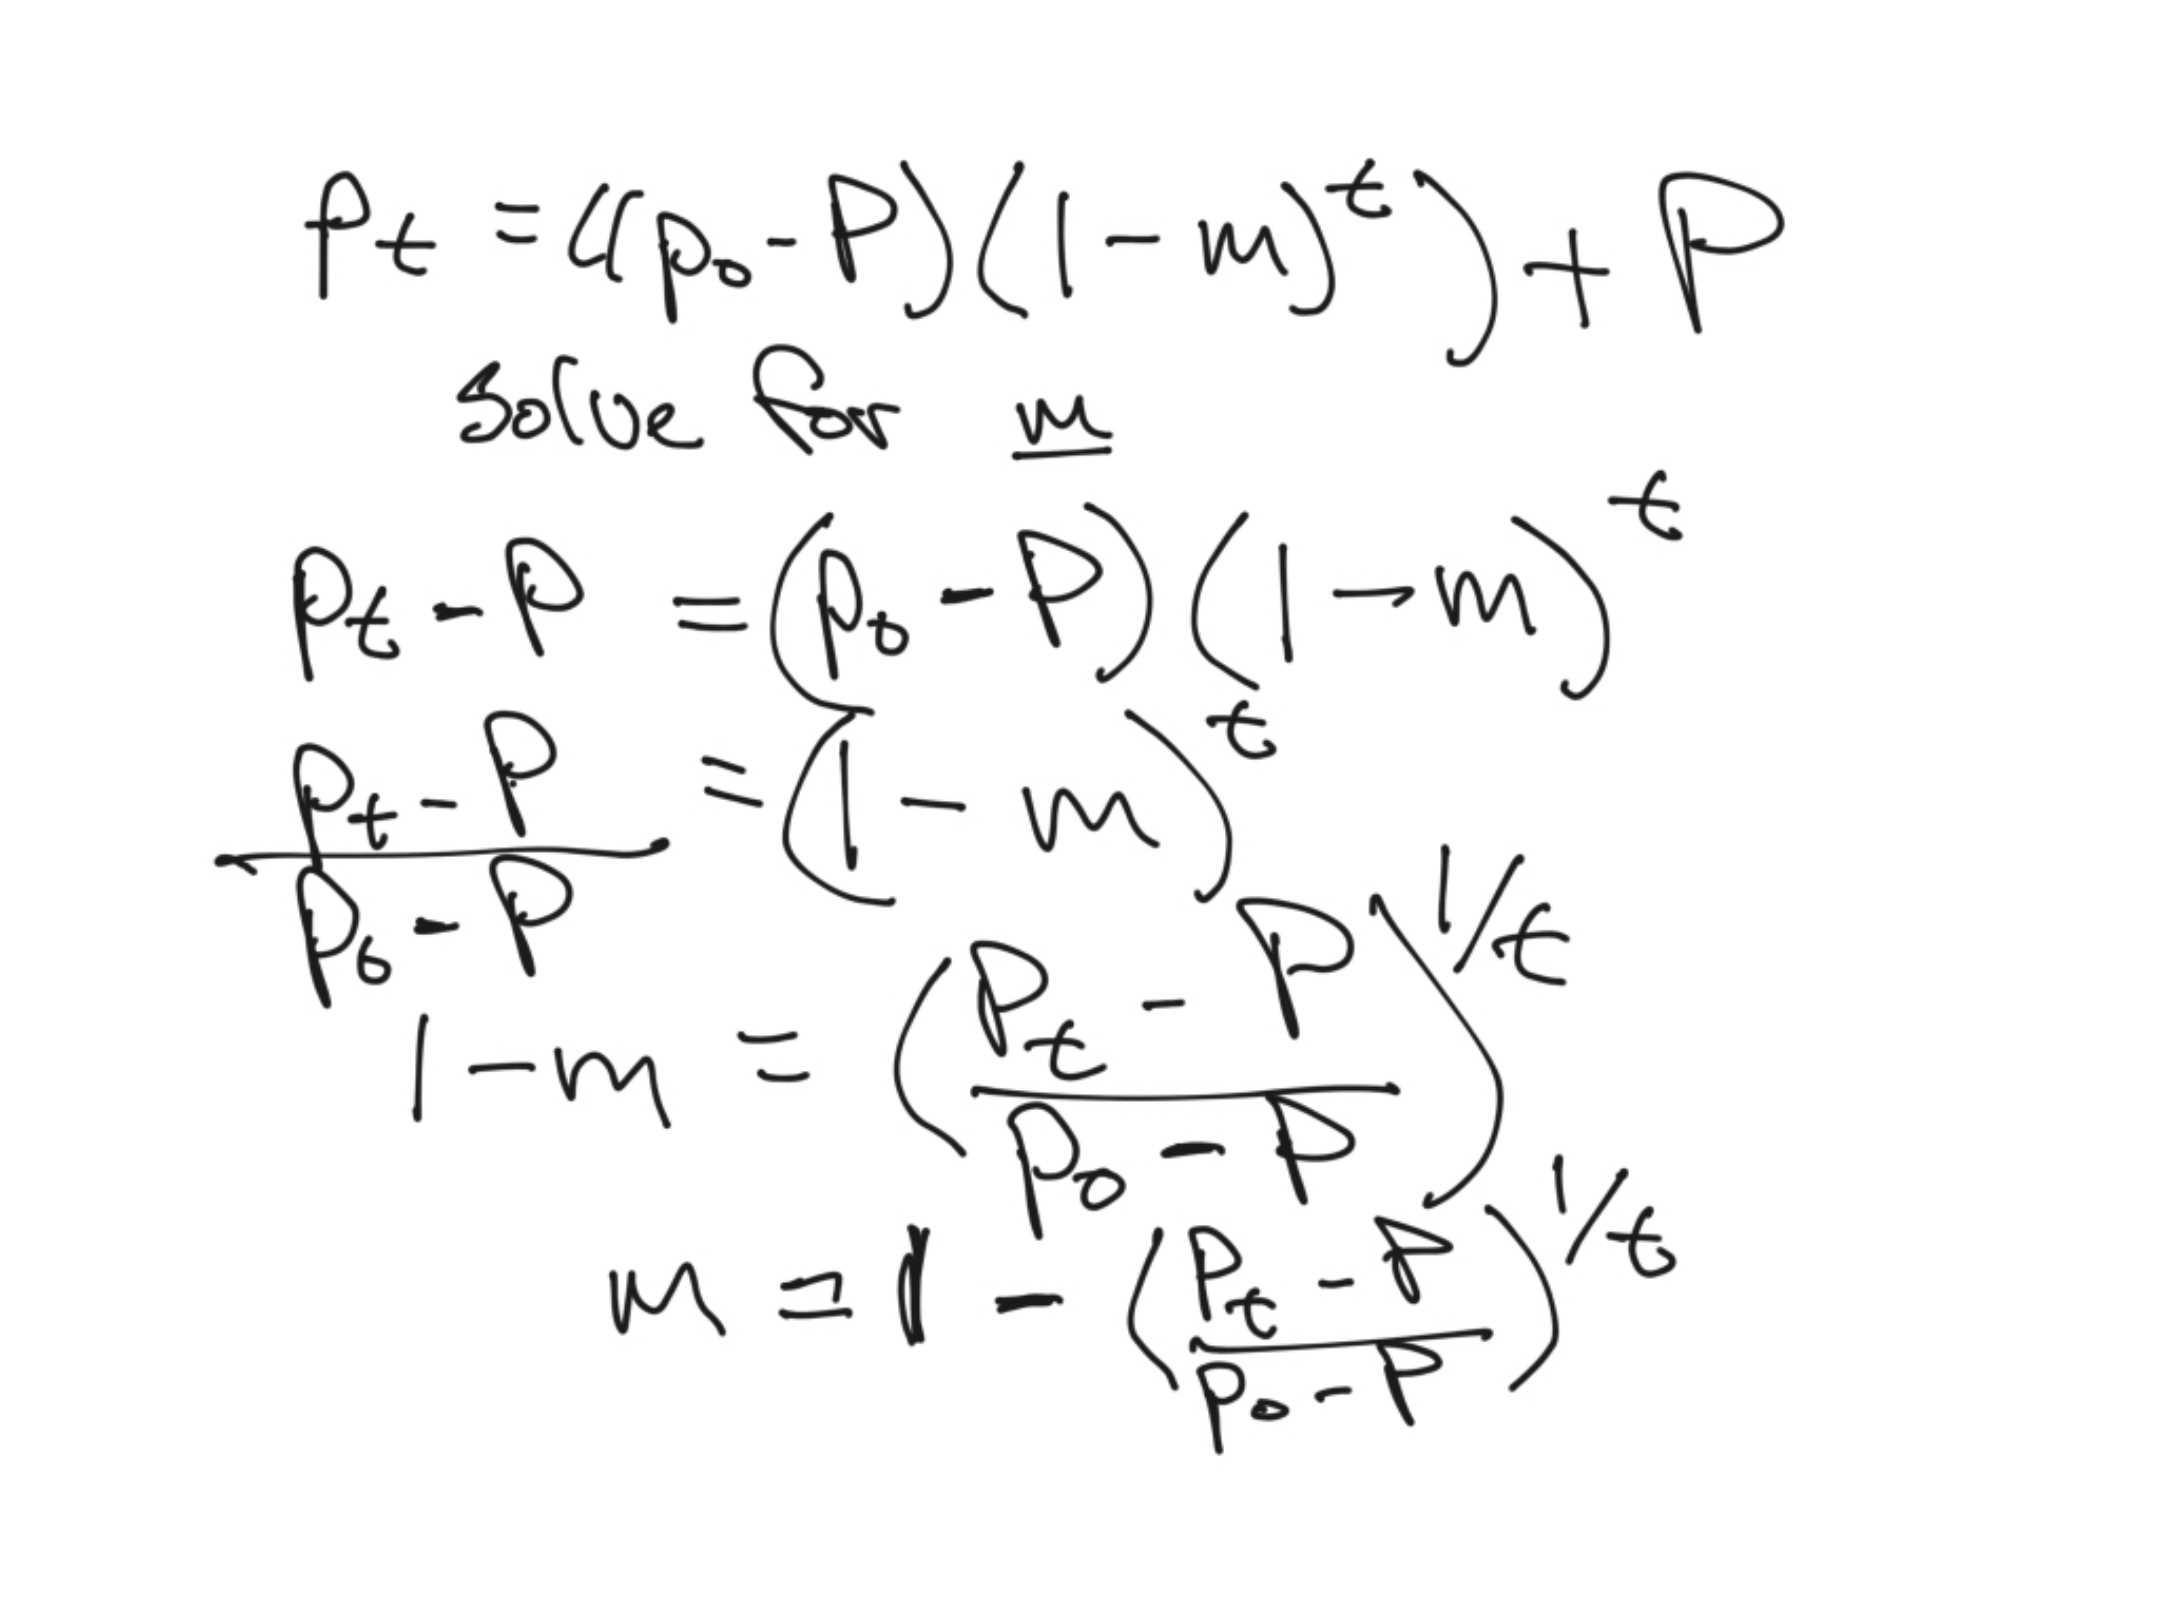 p_t = ((p_0 - P)(1 - m)^t) + P
solve for m
p_t - P = (p_0 - P)(1 - m)^t
(p_t - P)/(p_0 - P) = (1 - m)^t
1 - m = ((p_t - P)/(p_0 - P))^1/t
m = 1 - ((p_t - P)/(p_0 - P))^1/t